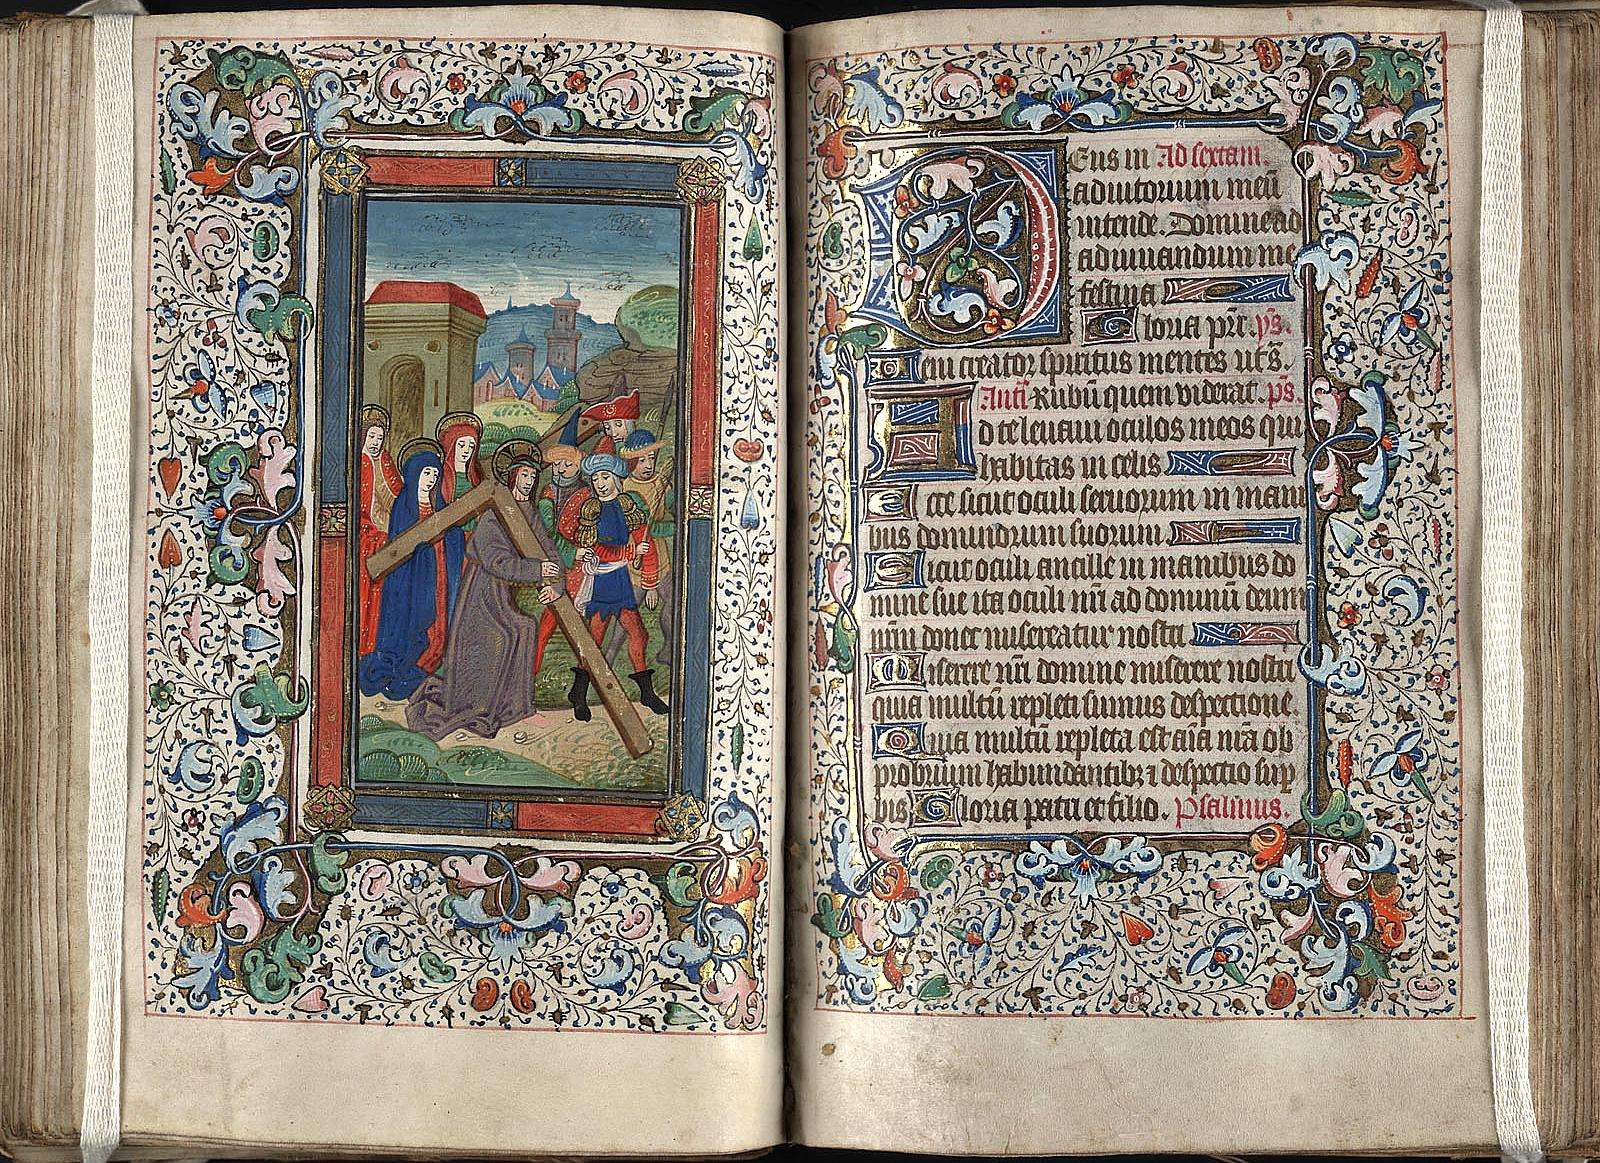 Deus in Ad sextam.
adiutorium meū
intende. Domine ad
adiuuandum me
festina
Gloria pr̄i. ps̄.
Ueni creator spiritus mentes
Anā Rubū quem viderat. ps̄.
Ad te leuaui oculos meos qui
habitas in celis
Ecce sicut oculi seruorum in mani
bus dominorum suorum
Sicut oculi ancille in manibus do
mine sue ita oculi nr̄i ad dominū deum
nr̄m donec misereatur nostri
Miserere nr̄i domine miserere nostri
quia multū repleti sumus despectione.
Quia multū repleta est aīa nr̄a ob
probrium habundantibꝫ ⁊ despectio sup̄
bis Gloria patri et filio. Psalmus.